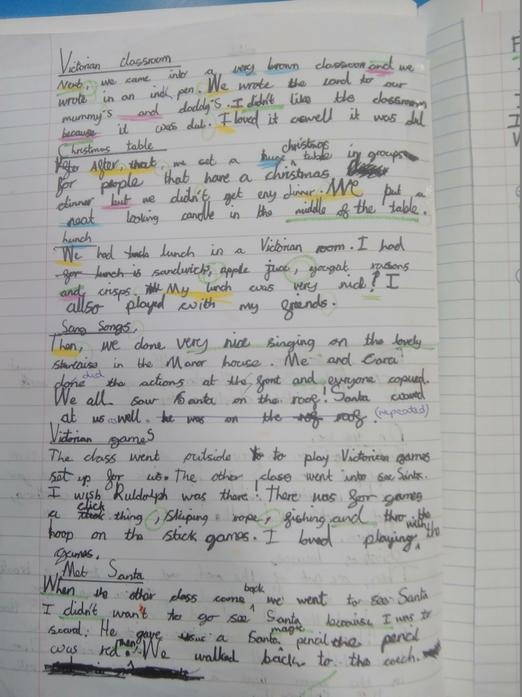 Victorian classroom
Next, we came into a very brown classroom and we
wrote in an ink pen. We wrote the card to our
mummy's and daddy's. I didn't like the classroom
because it was dul. I loved it aswell it was dul
Christmas table
After, that, we set a huge christmas table in groups
for people that have a christmas
dinner but we didn't get eny dinner. We put a
neat looking candle in the middle of the table.
lunch
We had lunch in a Victorian room. I had
for lunch is sandwich, apple juce, yougat raisons
and crisps. My lunch was very nice! I
allso played with my friends.
Sang Songs.
Then, we done very nice singing on the lovely
staricase in the Manor house. Me and Cara
done did the actions at the front and evryone copied.
We all saw Santa on the roof! Santa waved
at us as well. he was on the roof. (repeated)
Victorian games
The class went outside to play Victorian games
set up for us. The other class went into see Santa.
I wish Ruldolph was there. There was for games
a click thing, skiping rope, fishing and thro the
hoop on the stick games. I loved playing with the
games.
Met Santa
When the other class came back we went to see Santa
I didn't want to go see Santa because I was to
scard. He gave a Santa magic pencil the pencil
was red. Then We walked back to the coach.